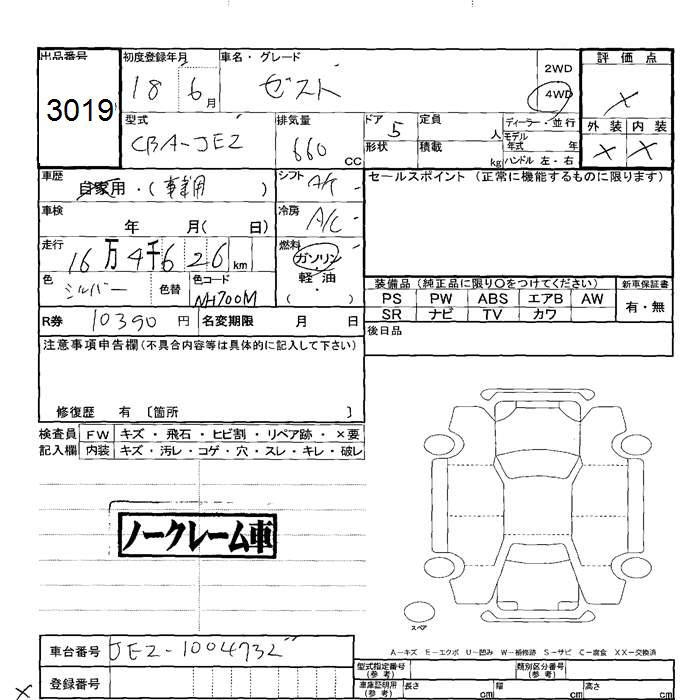 出品番号
3019
初度登録年月
18 6 月
車名・グレード
ゼスト
2WD
4WD
評価点
×
外装 内装
× ×
型式
CBA-JE2
排気量
660 CC
ドア
5
形状
定員
人
積載
kg
ディーラー・並行
モデル
年式 年
ハンドル 左・右
車歴
自家用・( )
シフト
A/T
車検
年 月( 日)
冷房
A/C
走行
16万4千626km
燃料
ガソリン
軽・油
( )
色
シルバー
色替
色コード
NH700M
R券 10390 円
名変期限 月 日
セールスポイント (正常に機能するものに限ります)
装備品 (純正品に限り○をつけてください)
新車保証書
PS PW ABS エアB AW
SR ナビ TV カワ
有・無
後日品
注意事項申告欄(不具合内容等は具体的に記入して下さい)
修復歴 有 〔箇所 〕
検査員
記入欄
FW キズ・飛石・ヒビ割・リペア跡・×要
内装 キズ・汚レ・コゲ・穴・スレ・キレ・破レ
ノークレーム車
スペア
A−キズ E−エクボ U−凹み W−補修跡 S−サビ C−腐食 XX−交換済
車台番号
JE2-1004732
登録番号
型式指定番号
(参考)
類別区分番号
(参考)
車庫証明用
(参考)
長さ cm
幅 cm
高さ cm
×